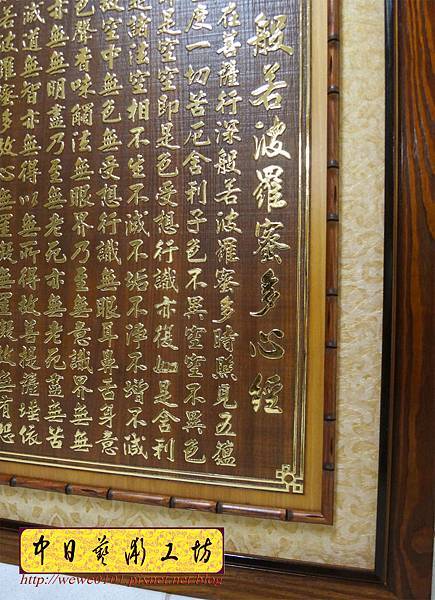 般若波羅蜜多心經
在菩薩行深般若波羅蜜多時照見五蘊
度一切苦厄舍利子色不異空空不異色
是空空即是色受想行識亦復如是舍利
是諸法空相不生不滅不垢不淨不增不減
空中無色無受想行識無眼耳鼻舌身意
色聲香味觸法無眼界乃至無意識界無無
亦無無明盡乃至無老死亦無老死盡無苦
滅道無智亦無得以無所得故菩提薩埵依
若波羅蜜多故心無罣礙無罣礙故無有恐
中日藝術工坊
http://wewe0101.pixnet.net/blog